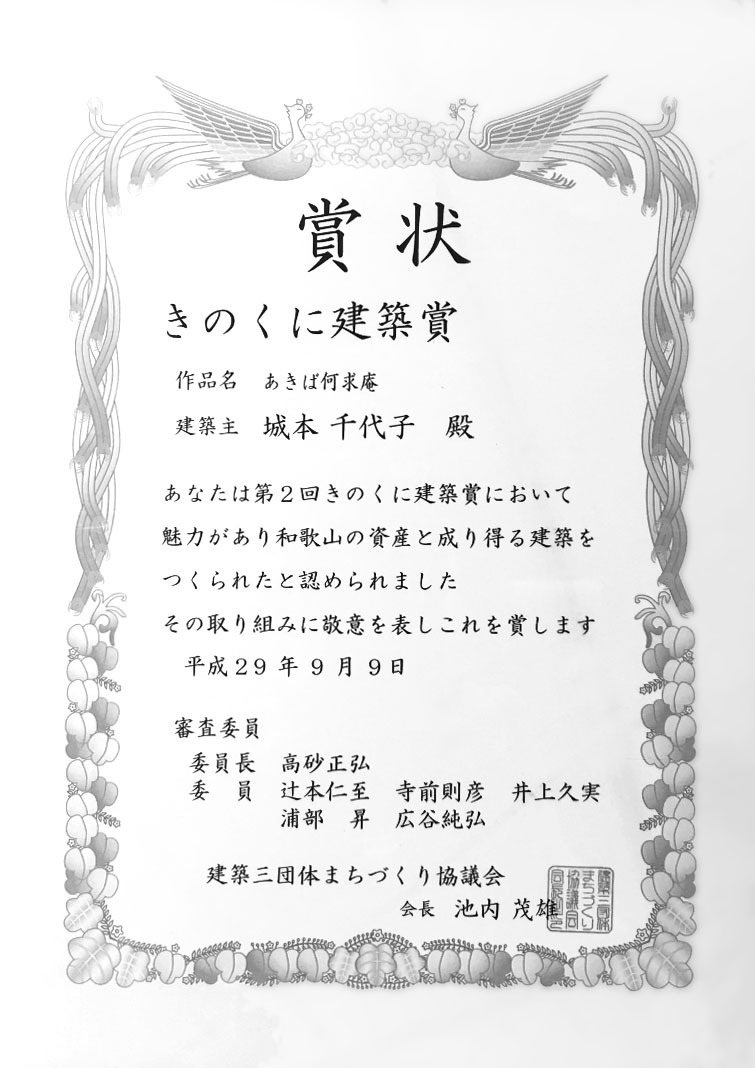 賞状
きのくに建築賞
作品名 あきば何求庵
建築主 城本 千代子 殿
あなたは第2回きのくに建築賞において
魅力があり和歌山の資産と成り得る建築を
つくられたと認められました
その取り組みに敬意を表しこれを賞します
平成29年9月9日
審査委員
委員長 高砂正弘
委 員 辻本仁至 寺前則彦 井上久実
浦部 昇 広谷純弘
建築三団体まちづくり協議会
会長 池内 茂雄
建築三団体
まちづくり
協議会
会長之印